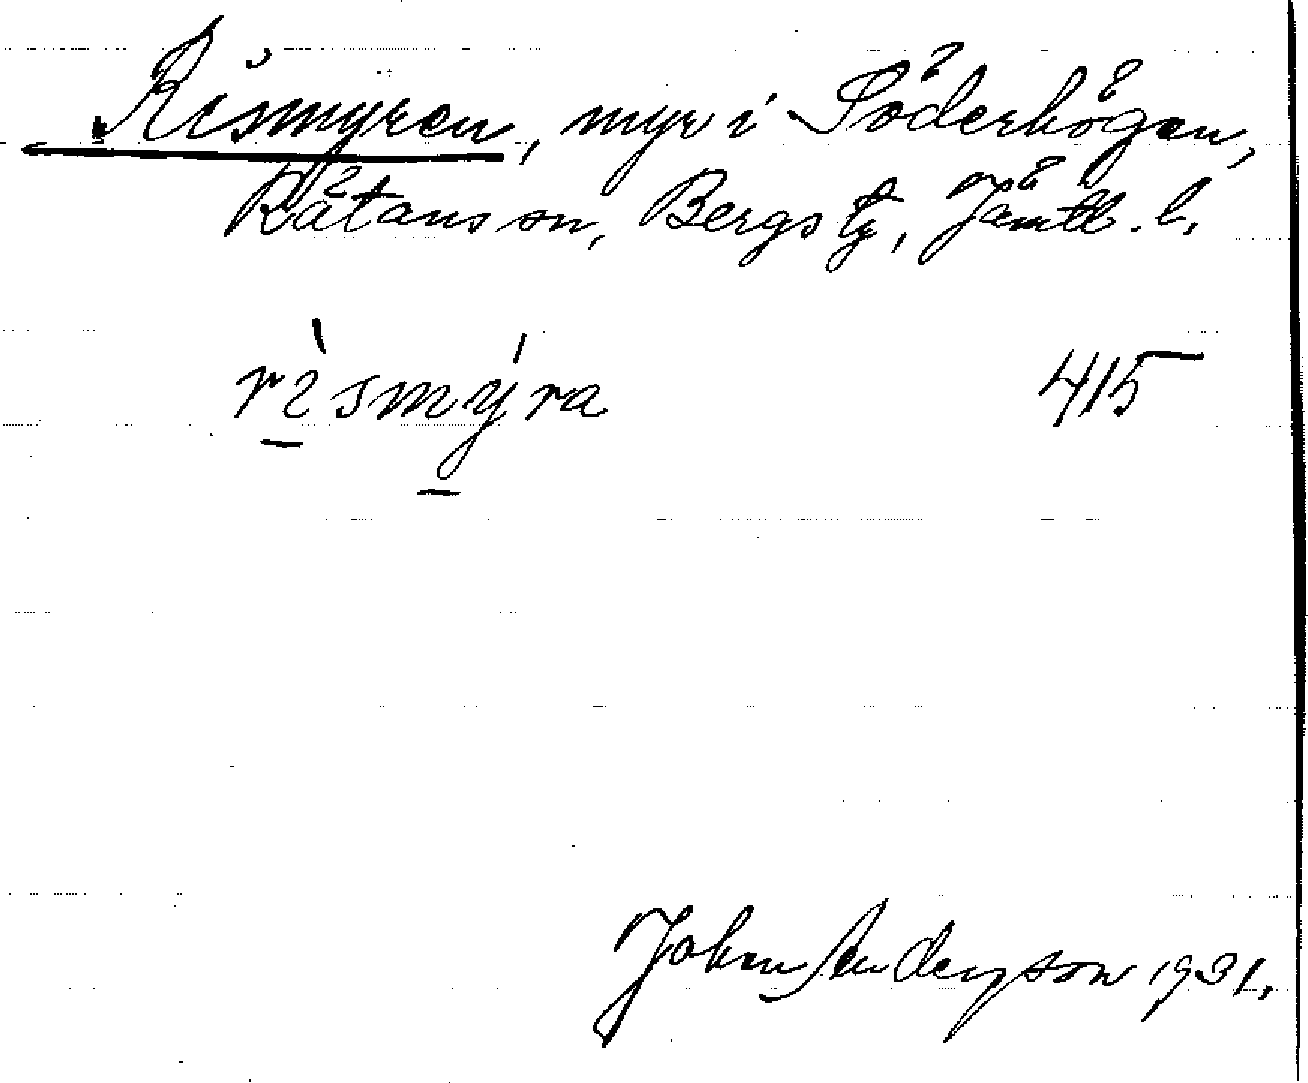 Rismyren, myr i Söderhögen,
Rätans sn, Bergs tg, Jämtl. l.
rìsmýra 415
Johan Anderson 1931.